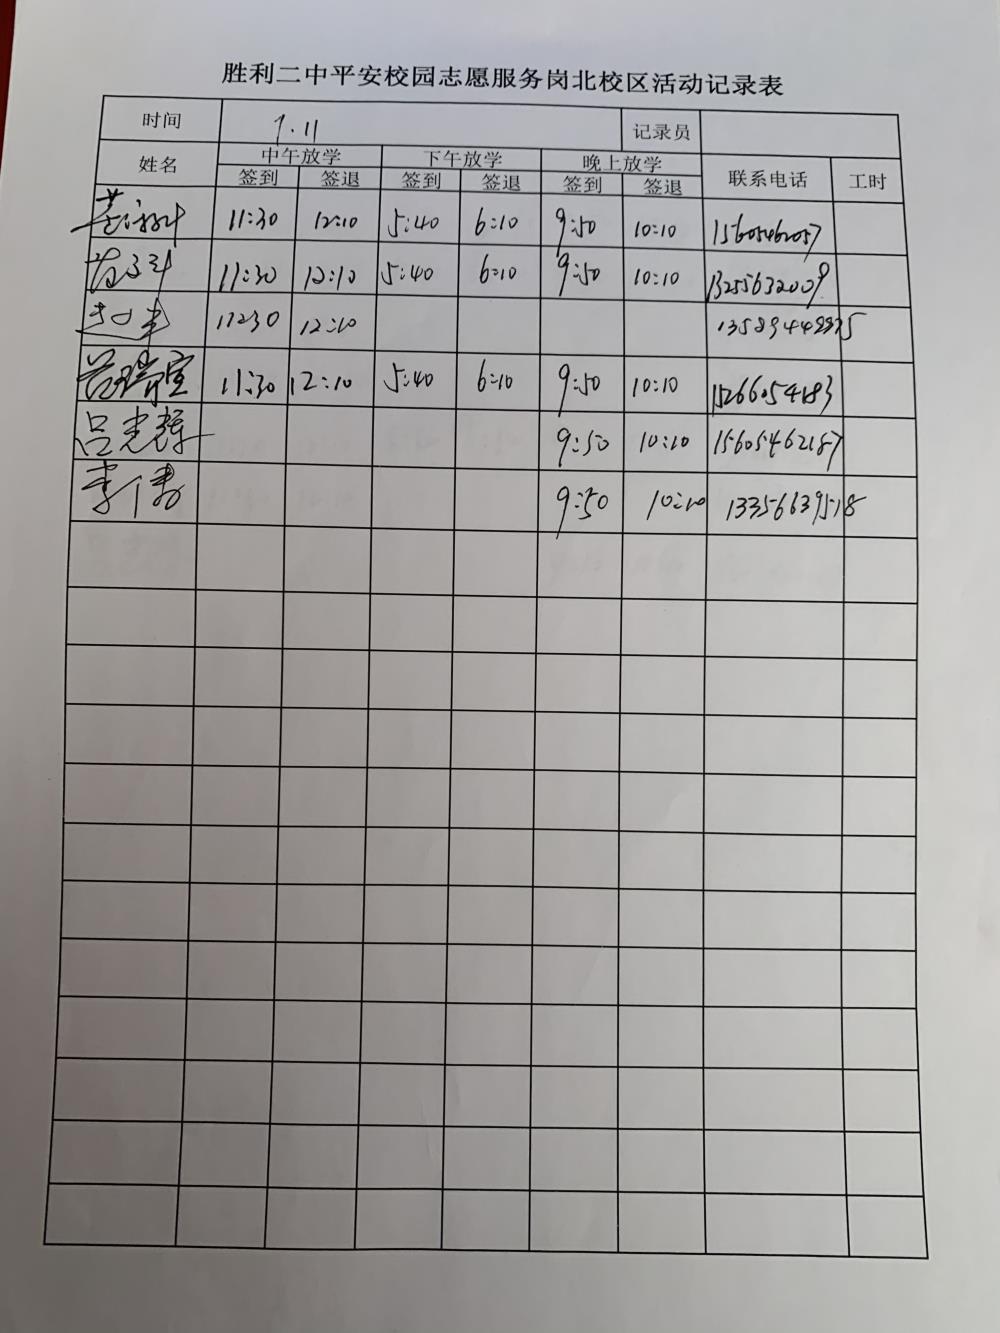 胜利二中平安校园志愿服务岗北校区活动记录表
时间 9.11 记录员
姓名 中午放学 下午放学 晚上放学 联系电话 工时
签到 签退 签到 签退 签到 签退
11:30 12:10 5:40 6:10 9:50 10:10 15605462057
11:30 12:10 5:40 6:10 9:50 10:10 13255632009
11:30 12:10
11:30 12:10 5:40 6:10 9:50 10:10 15266054183
吕志辉 9:50 10:10 15605462187
李倩 9:50 10:10 13356639518